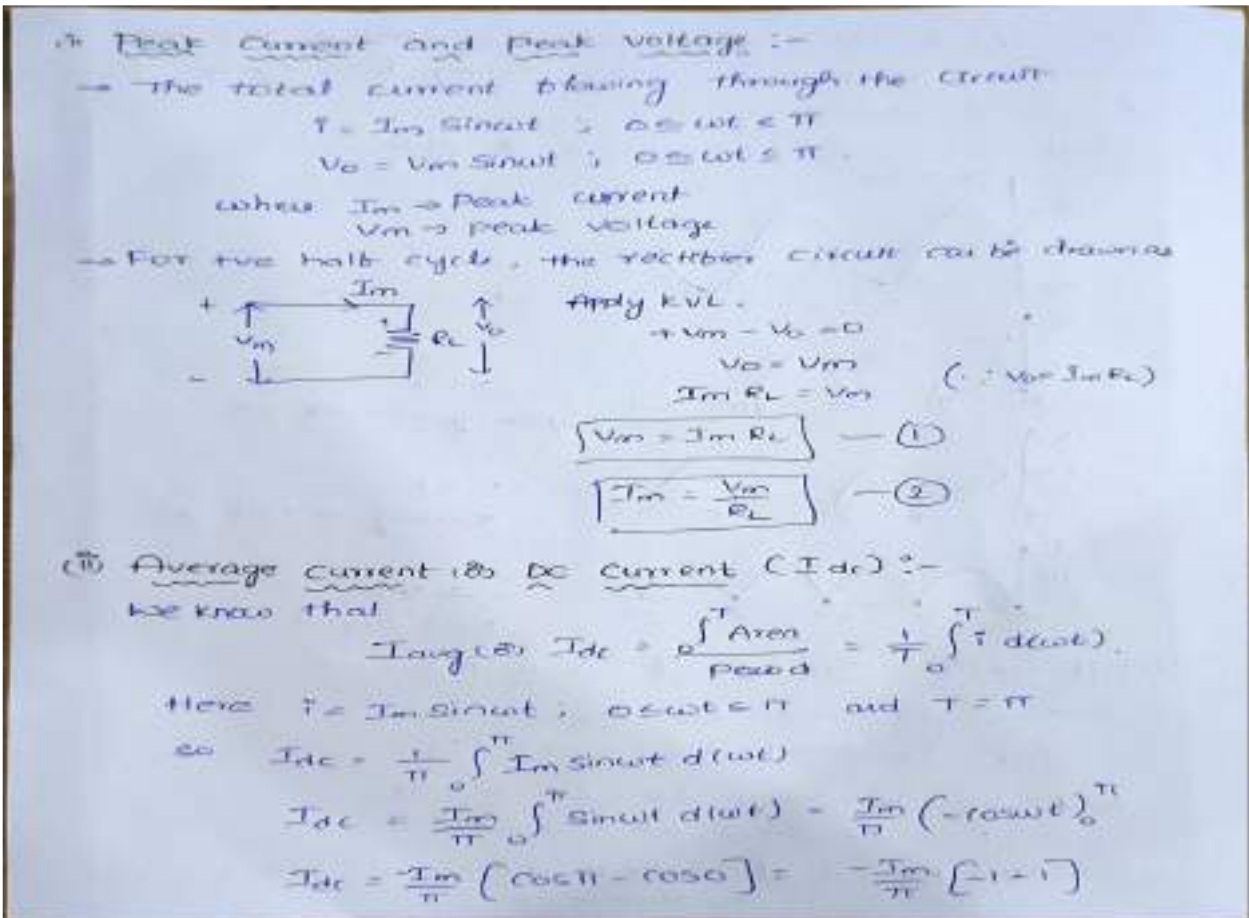 (i) Peak Current and Peak Voltage :-
→ The total current flowing through the circuit
i = Im Sinωt ; 0 ≤ ωt ≤ π
Vo = Vm Sinωt ; 0 ≤ ωt ≤ π.
where Im → Peak current
Vm → peak voltage
→ For +ve half cycle, the rectifier circuit can be drawn as
Im
+ Vm - + - RL Vo
Apply KVL.
+Vm - Vo = 0
Vo = Vm
Im RL = Vm (∵ Vo = Im RL)
Vm = Im RL — ①
Im = Vm/RL — ②
(ii) Average current (or) DC Current (Idc) :-
We know that
Iavg (or) Idc = ₀∫ᵀ Area / Period = 1/T ₀∫ᵀ i d(ωt).
Here i = Im Sinωt ; 0 ≤ ωt ≤ π and T = π
so Idc = 1/π ₀∫^π Im sinωt d(ωt)
Idc = Im/π ₀∫^π Sinωt d(ωt) = Im/π (-cosωt)₀^π
Idc = -Im/π [cosπ - cos0] = -Im/π [-1-1]